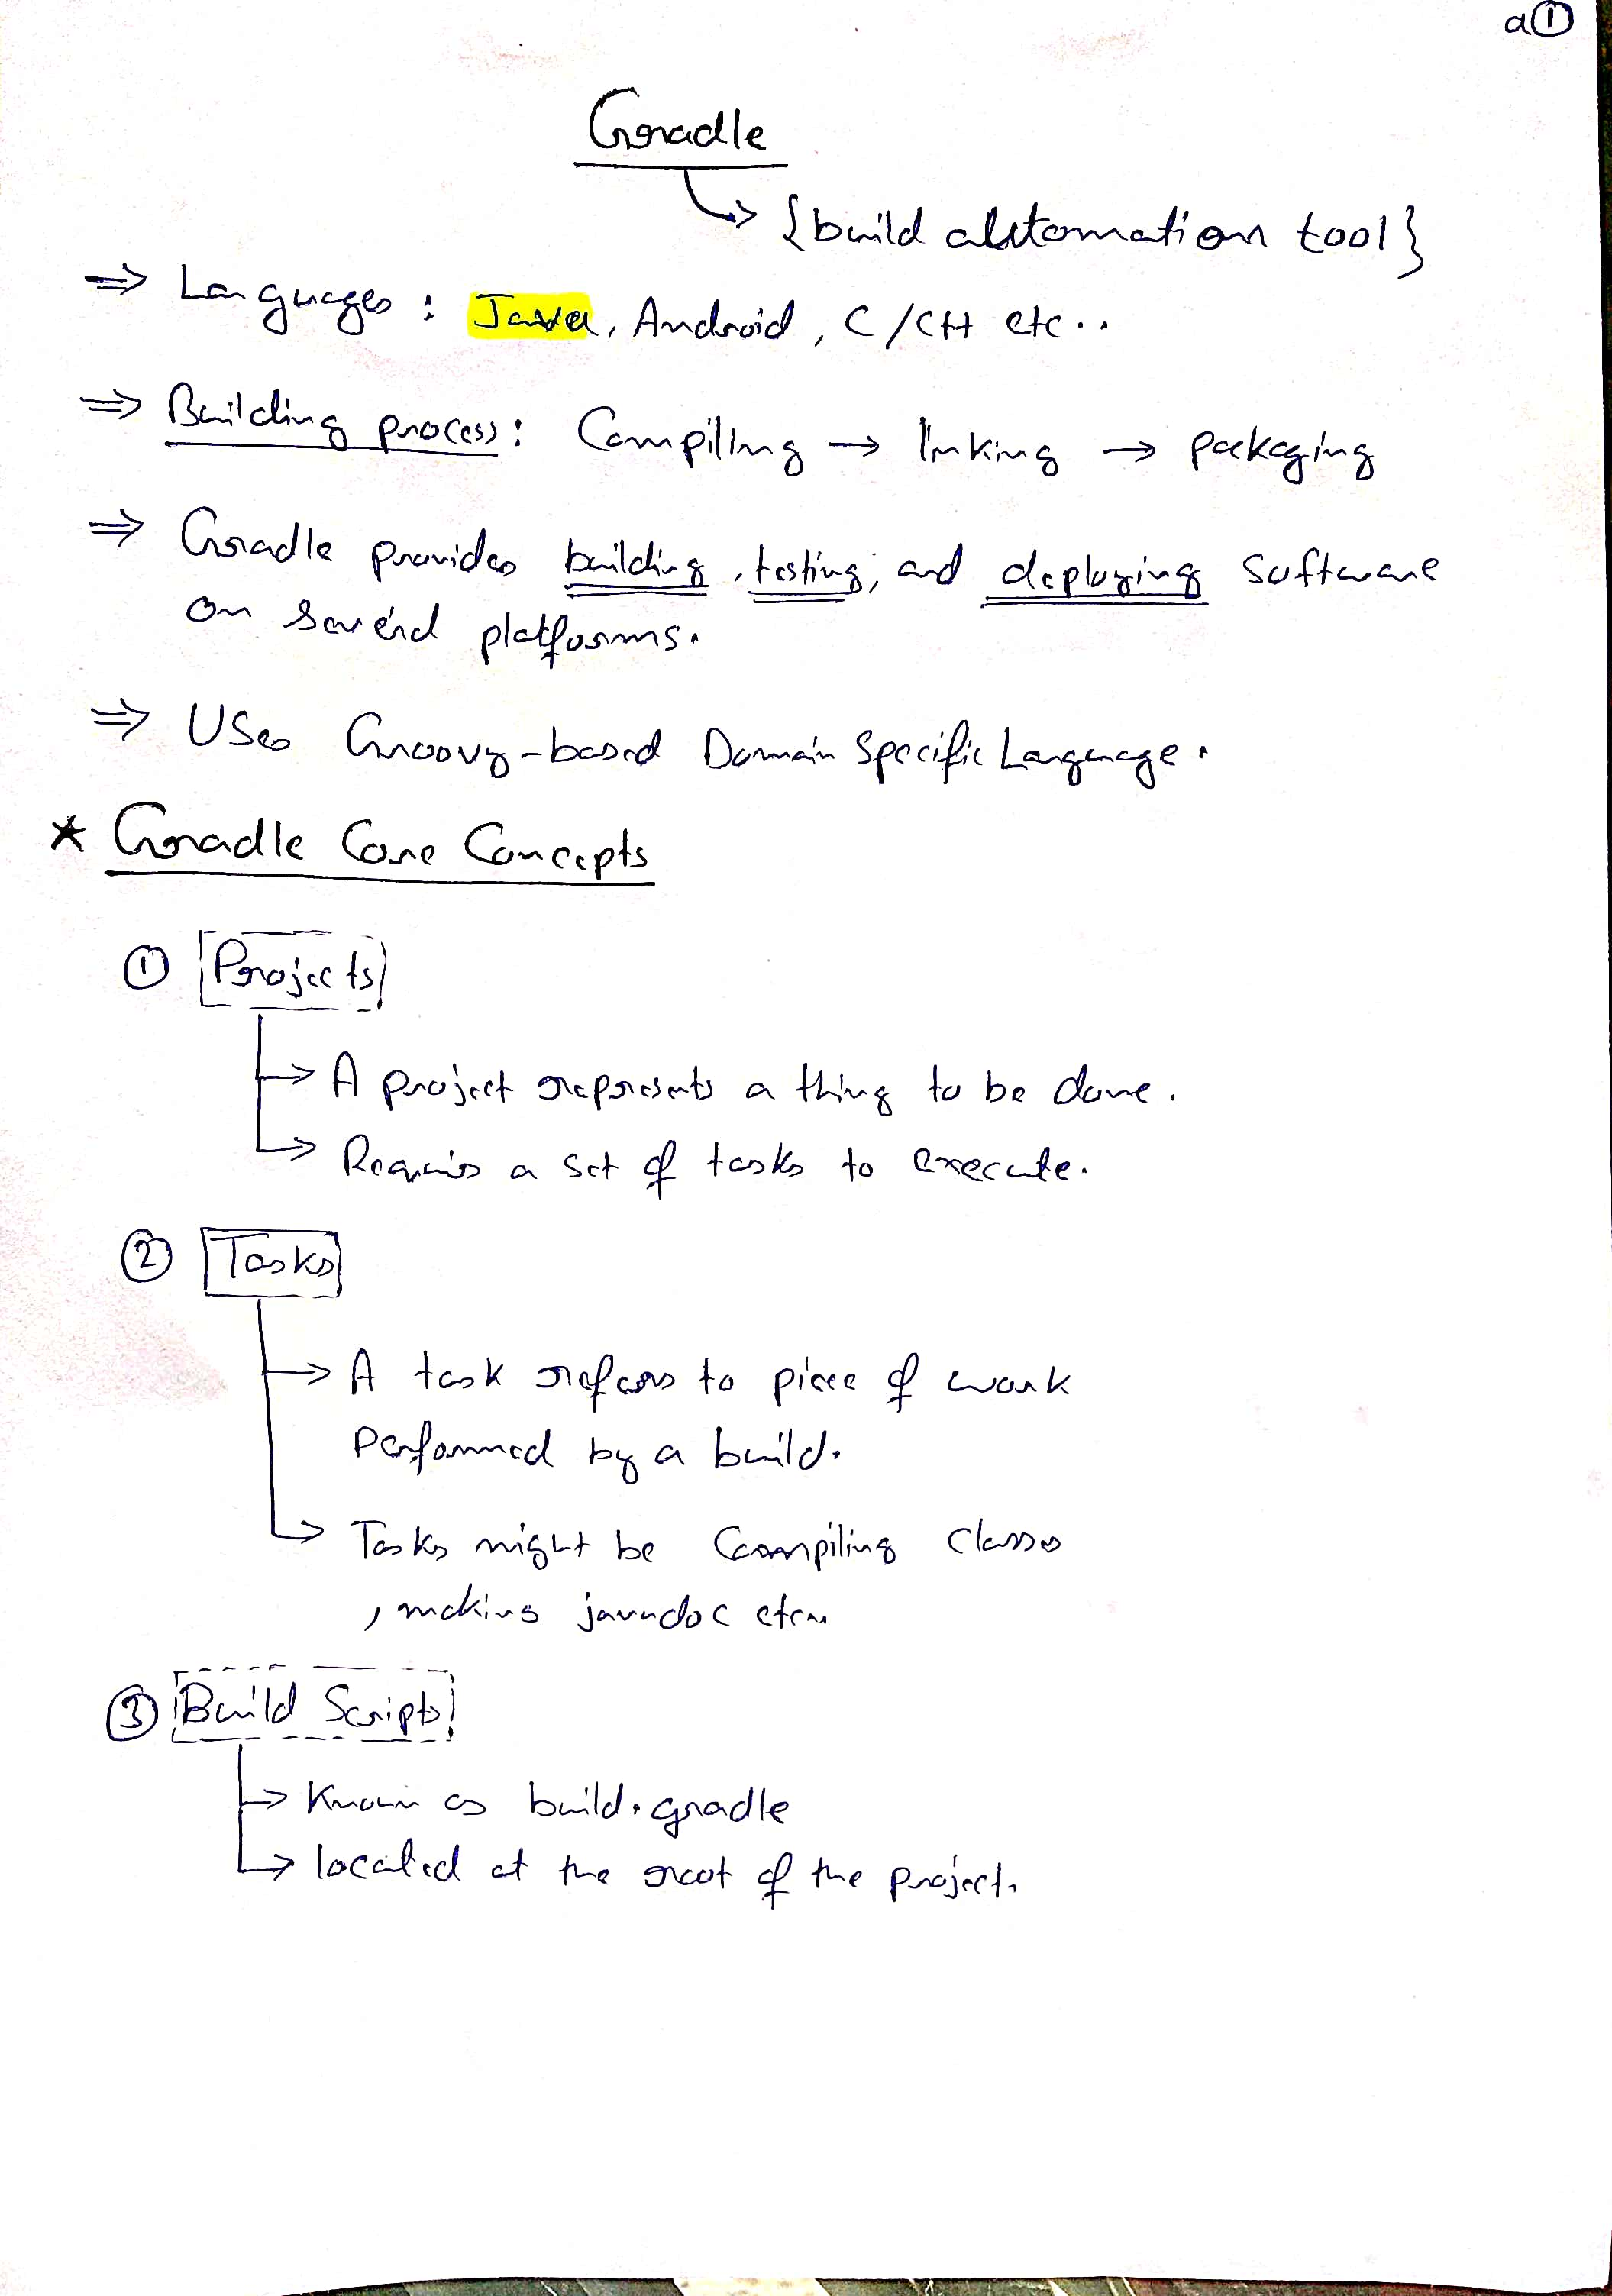 a①
Gradle
↳ {build automation tool}
⇒ Languages : Java, Android, C/C++ etc..
⇒ Building process: Compiling → linking → packaging
⇒ Gradle provides building, testing, and deploying software
on several platforms.
⇒ Uses Groovy-based Domain Specific Language.
* Gradle Core Concepts
① Projects
→ A project represents a thing to be done.
↳ Requires a set of tasks to execute.
② Tasks
→ A task refers to piece of work
performed by a build.
↳ Tasks might be Compiling classes
, making javadoc etc..
③ Build Scripts
→ Known as build.gradle
↳ located at the root of the project.